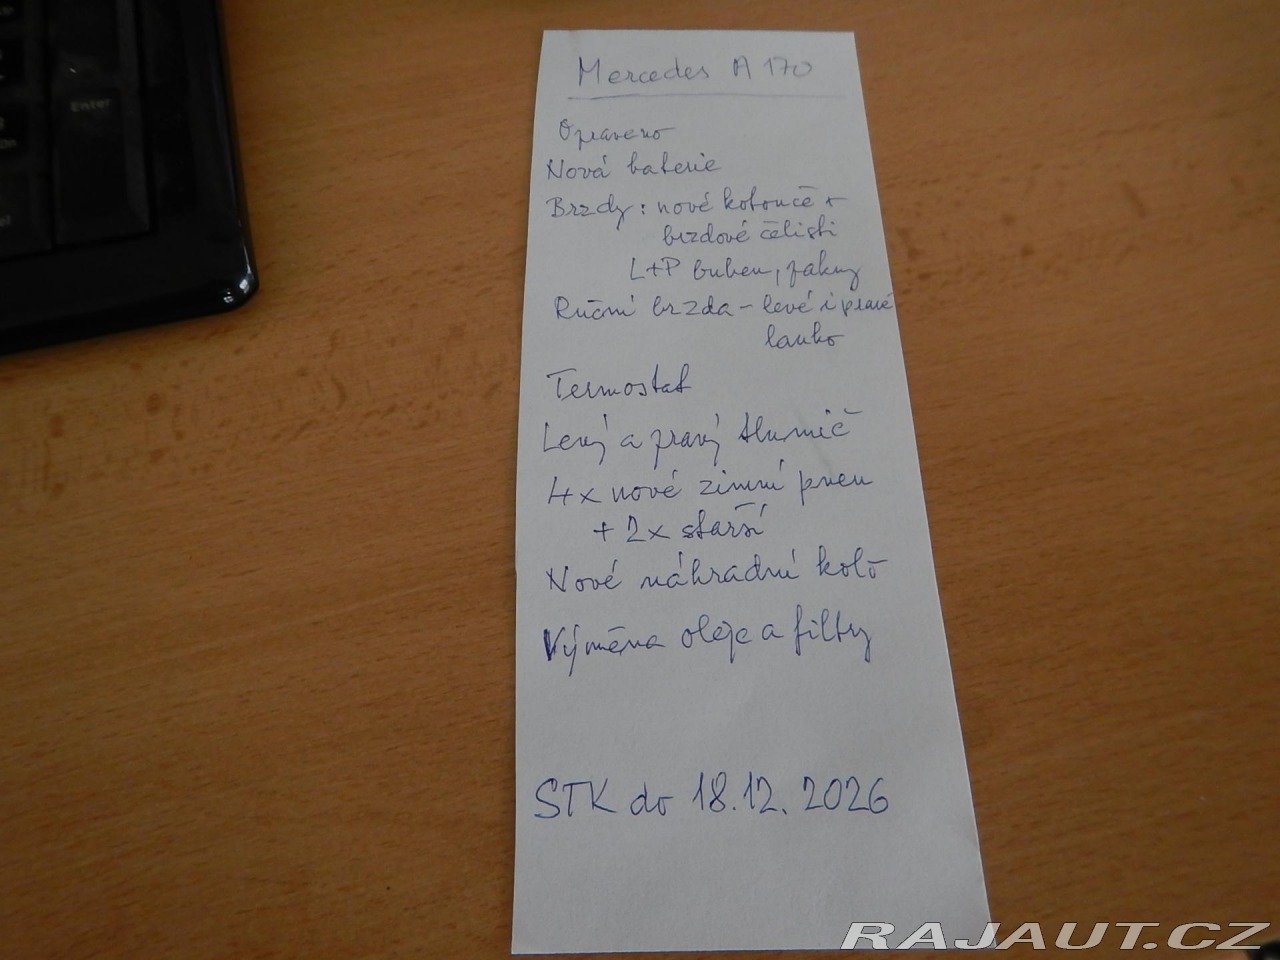 Mercedes A 170
Opraveno
Nová baterie
Brzdy: nové kotouče +
brzdové čelisti
L+P buben, pakny
Ruční brzda - levé i pravé
lanko
Termostat
Levý a pravý tlumič
4x nové zimní pneu
+ 2x starší
Nové náhradní kolo
Výměna oleje a filtry
STK do 18.12.2026
Enter
RAJAUT.CZ